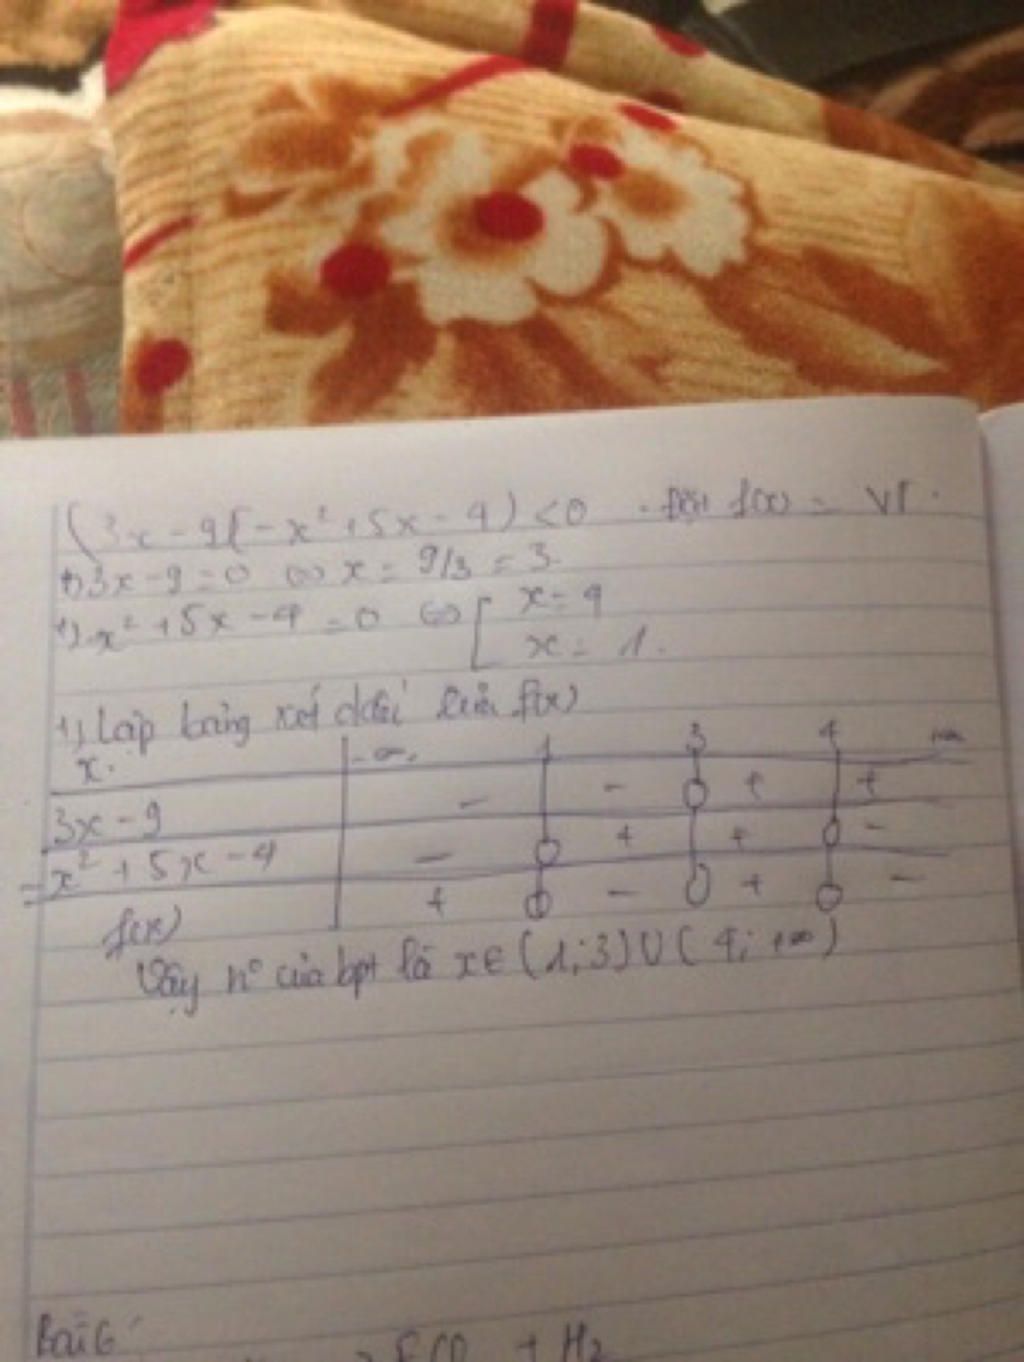 (3x - 9)(-x² + 5x - 4) < 0 . Đặt f(x) = VT.
+) 3x - 9 = 0 ⇔ x = 9/3 = 3.
+) -x² + 5x - 4 = 0 ⇔ [ x = 4
x = 1.
+) Lập bảng xét dấu f(x)
x. -∞. 1 3 4 +∞
3x - 9 - - 0 + +
-x² + 5x - 4 - 0 + + 0 -
f(x) + 0 - 0 + 0 -
Vậy n° của bpt là x ∈ (1; 3) ∪ (4; +∞)
Bài 6
+ H₂